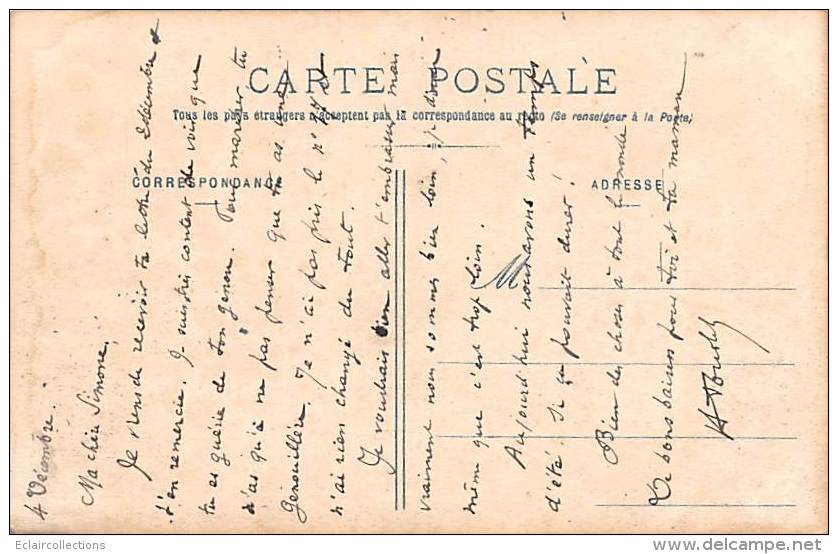 CARTE POSTALE
Tous les pays étrangers n'acceptent pas la correspondance au recto (Se renseigner à la Poste)
CORRESPONDANCE
ADRESSE
M
4 Décembre.
Ma chère Simone,
Je viens de recevoir ta lettre du 2 décembre &
t'en remercie. Je suis très content de voir que
tu es guérie de ton genou. Pour marcher tu
n'as qu'à ne pas penser que tu as une
genouillère. Je n'ai pas pris le n°
n'ai rien changé du tout.
Je voudrais bien aller t'embrasser mais
vraiment nous sommes bien loin, je dirai
même que c'est trop loin.
Aujourd'hui nous avons un temps
d'été. Si ça pouvait durer!
Bien des choses à tout le monde
De bons baisers pour toi et ta maman
Eclaircollections
delcampe.net